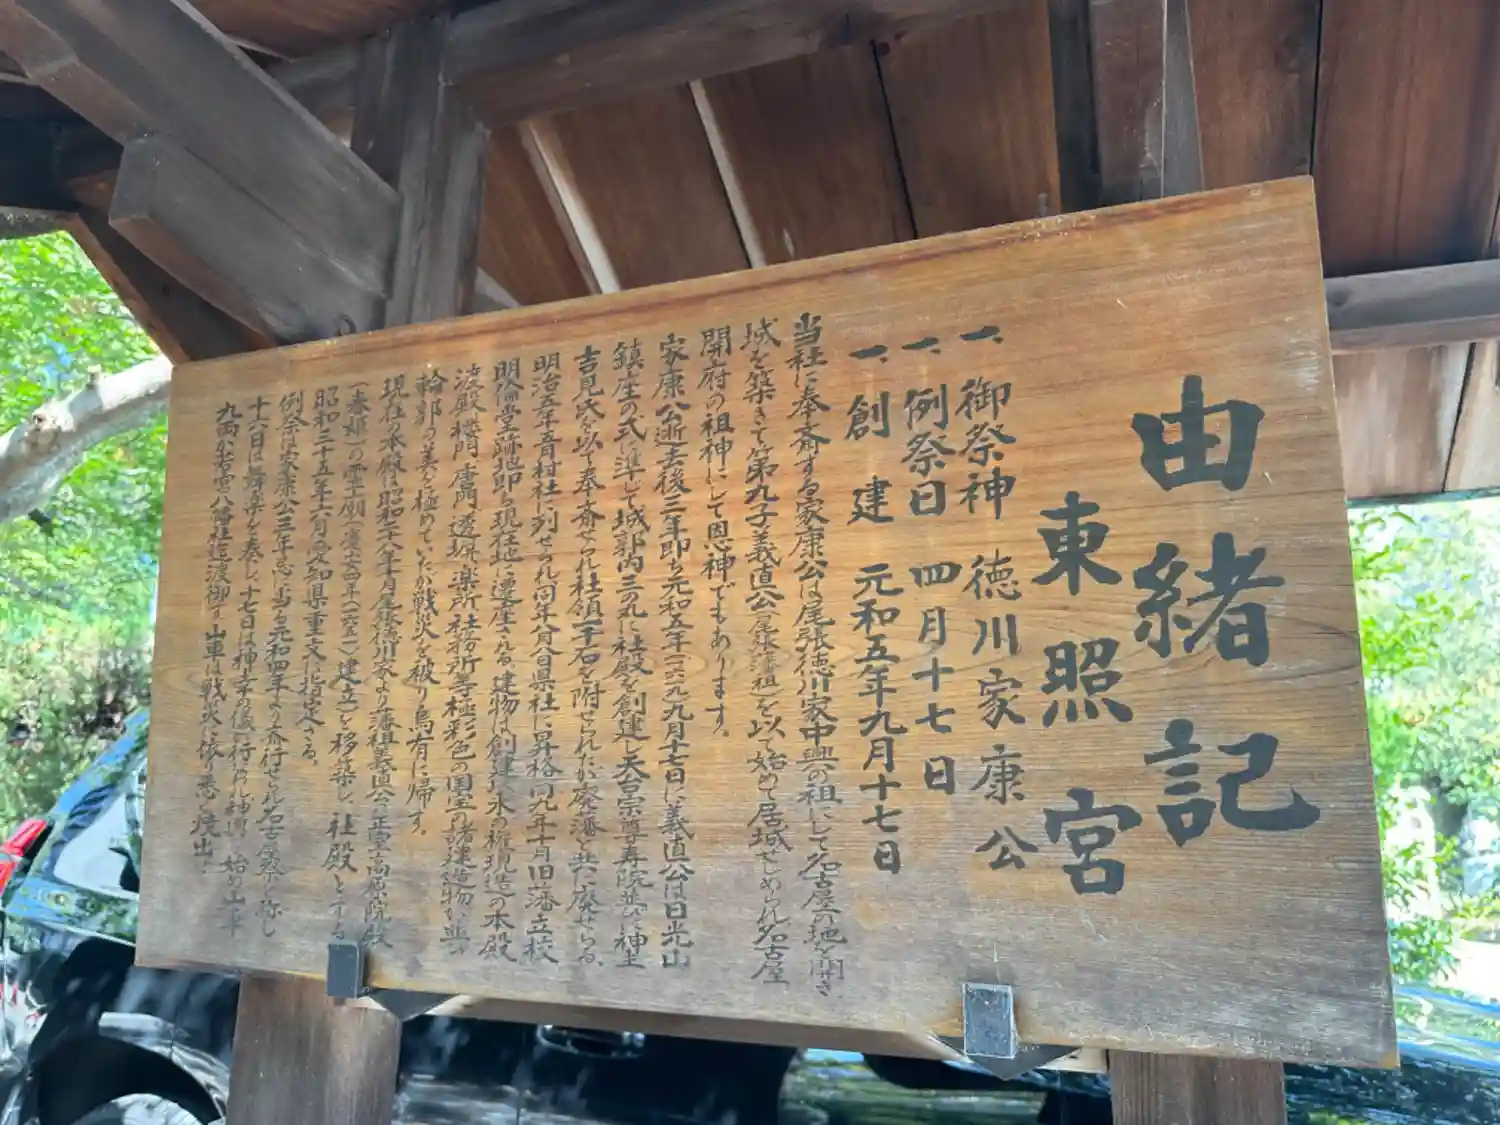 由緒記
東照宮
一、御祭神 徳川家康公
一、例祭日 四月十七日
一、創建 元和五年九月十七日
当社に奉斎する家康公は尾張徳川家中興の祖にして名古屋の地を開き、
城を築きて第九子義直公(尾張藩祖)を以て始めて居城せしめられ名古屋
開府の祖神にして恩神でもあります。
家康公逝去後三年即ち元和五年(一六一九)九月十七日に義直公は日光山
鎮座の式に準じて城郭内三の丸に社殿を創建し天台宗尊寿院並びに神主
吉見氏を以て奉斎せられ社領一千石を附せられたが廃藩と共に廃せらる。
明治五年五月村社に列せられ同年八月八日県社に昇格同九年十月旧藩立校
明倫堂跡地即ち現在地に遷座さる。建物は創建以来の権現造の本殿
渡殿、楼門、唐門、透塀、楽所、社務所等極彩色の国宝の諸建造物が輿
輪郭の美を極めていたが戦災を被り烏有に帰す。
現在の本殿は昭和二十八年十月尾張徳川家より藩祖義直公正室高原院殿
(春姫)の霊廟(慶安四年(一六五一)建立)を移築し、社殿とする
昭和三十五年六月愛知県重文に指定さる。
例祭は家康公三年忌に当る元和四年より斎行せられ名古屋祭と称し
十六日は舞楽を奏し、十七日は神幸の儀
九両が若宮八幡社迄渡御す山車は戦災に依り悉く焼出